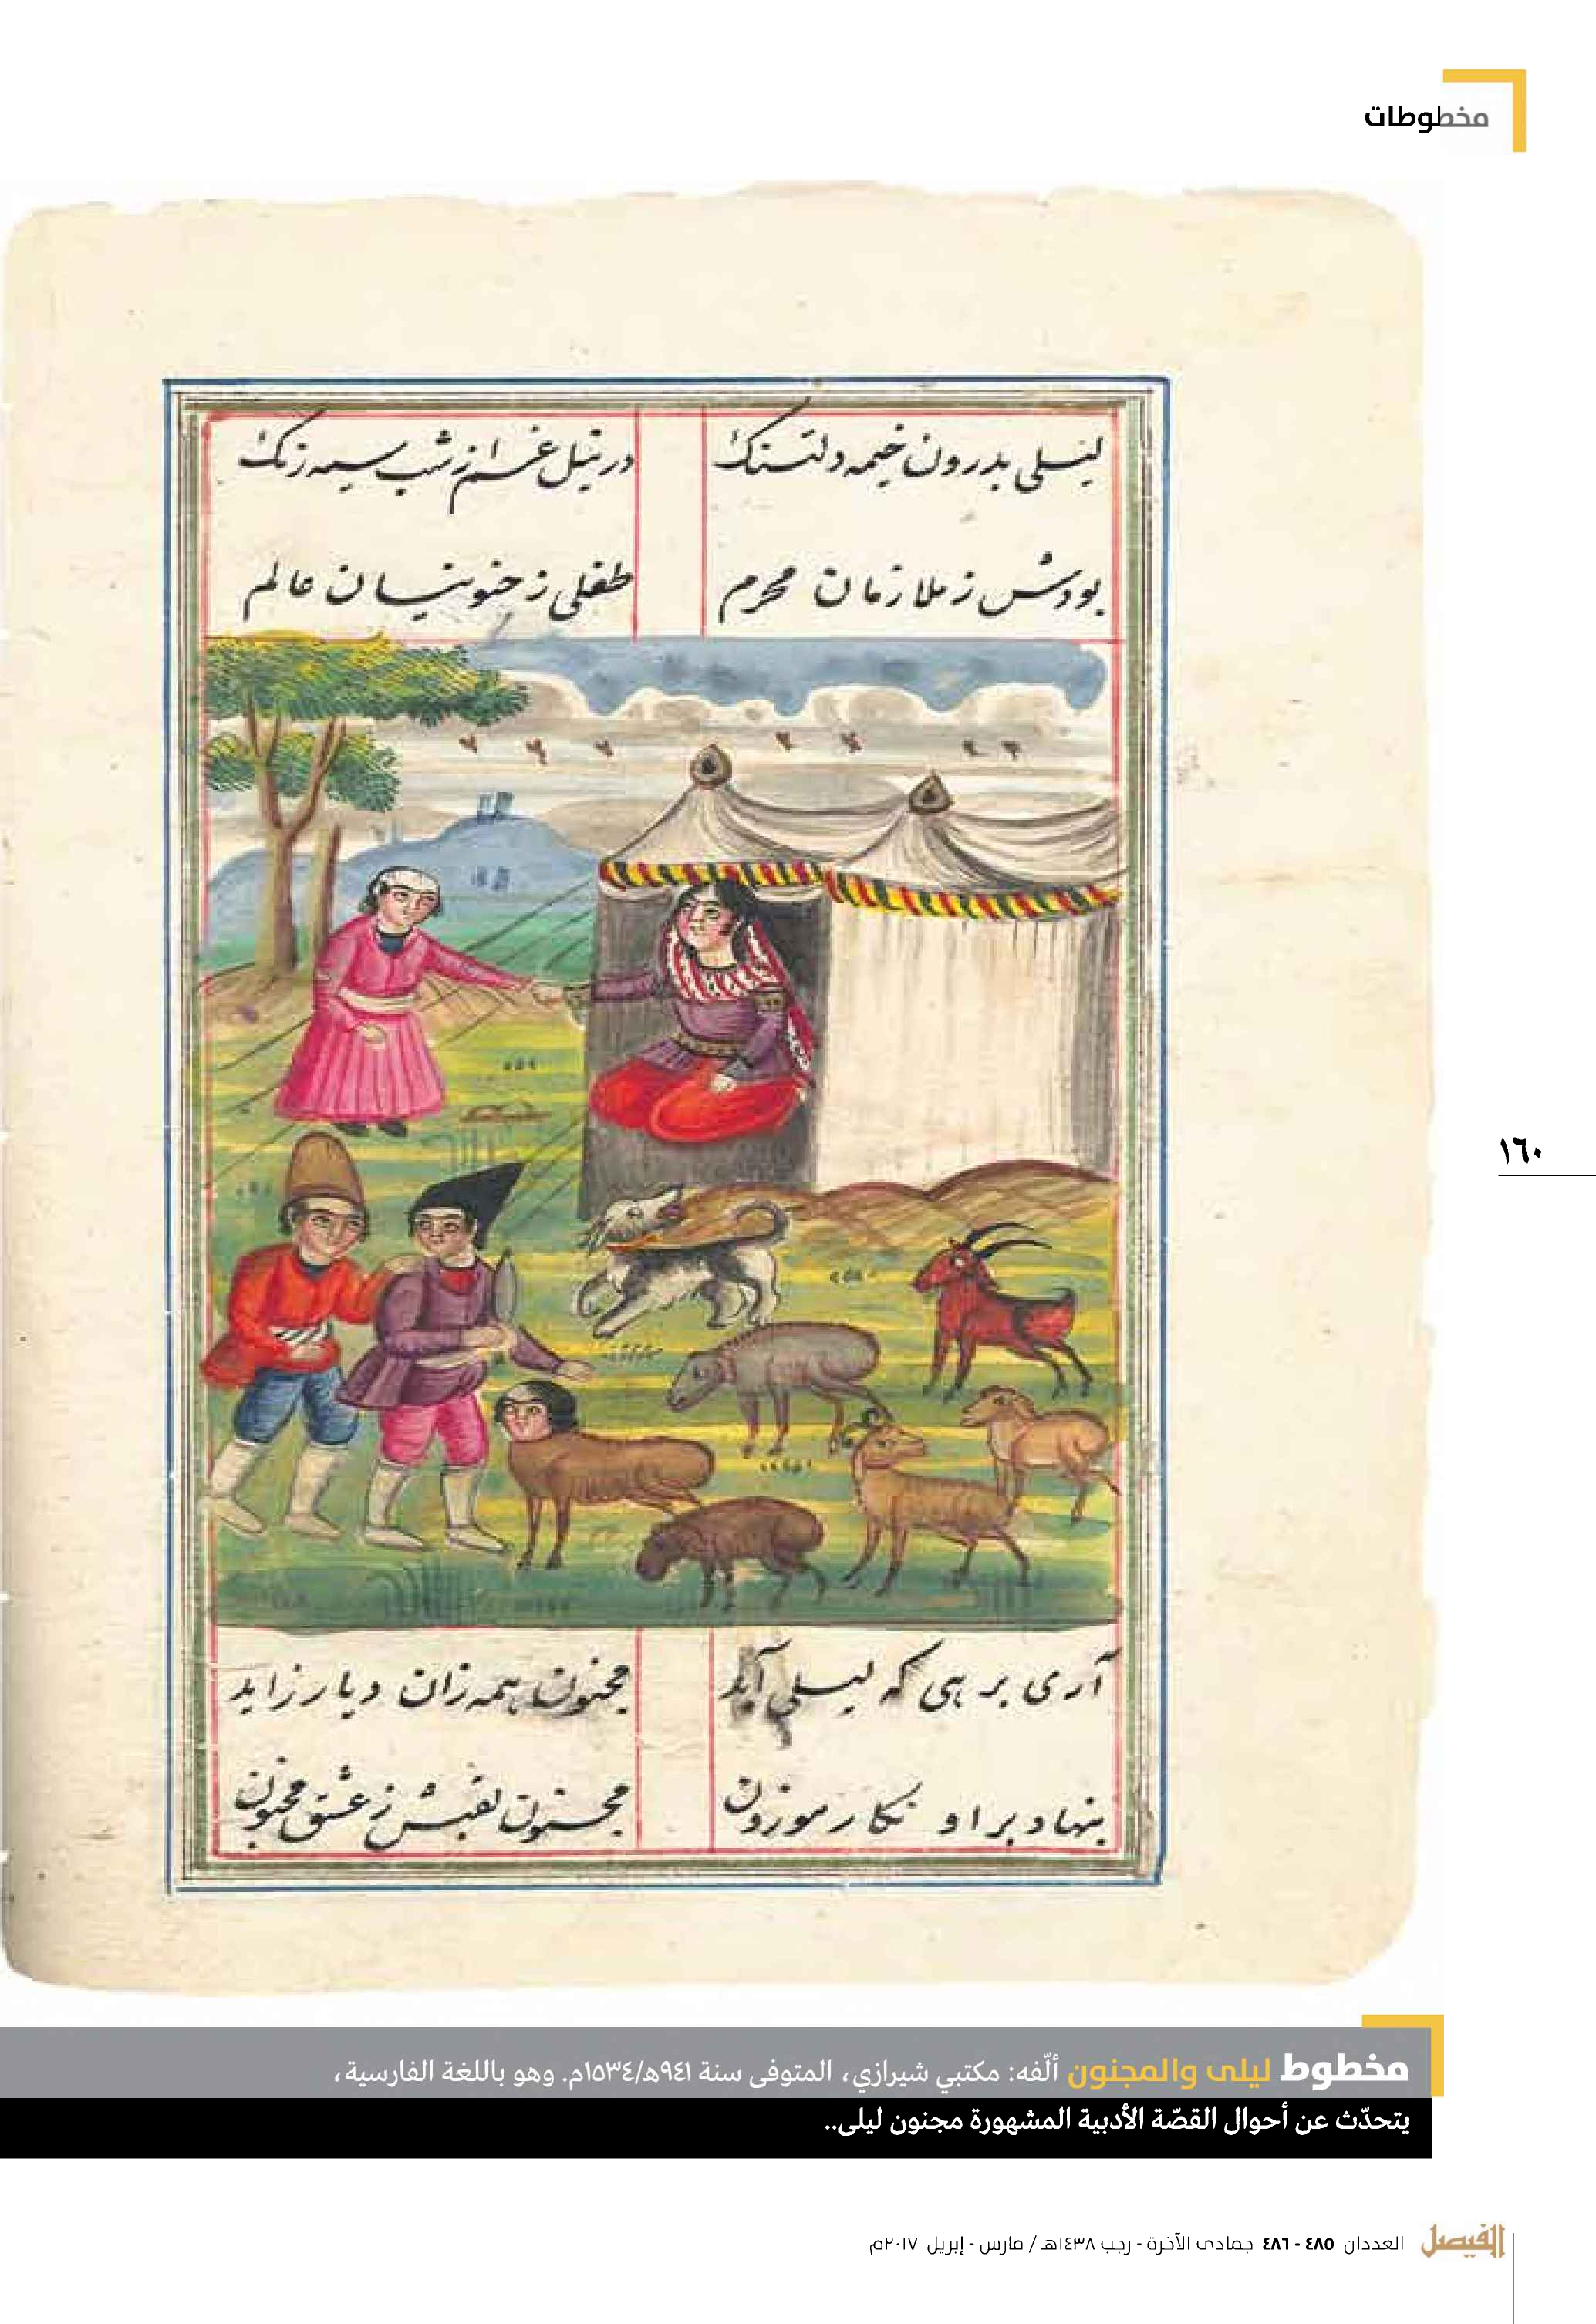 مخطوطات
ليلى بدرون خيمه دلتنک
در نيل غم از شب سيه رنک
بودش ز ملازمان محرم
طفلی ز جنونيان عالم
آری بر هی که ليلی آيد
مجنون همه زان ديار زايد
بنهاد بر او نکار موزون
مجنون لقبش ز عشق مجنون
١٦٠
مخطوط ليلى والمجنون ألّفه: مكتبي شيرازي، المتوفى سنة ٩٤١هـ/١٥٣٤م. وهو باللغة الفارسية،
يتحدّث عن أحوال القصّة الأدبية المشهورة مجنون ليلى..
الفيصل العددان ٤٨٥ - ٤٨٦ جمادى الآخرة - رجب ١٤٣٨هـ / مارس - إبريل ٢٠١٧م